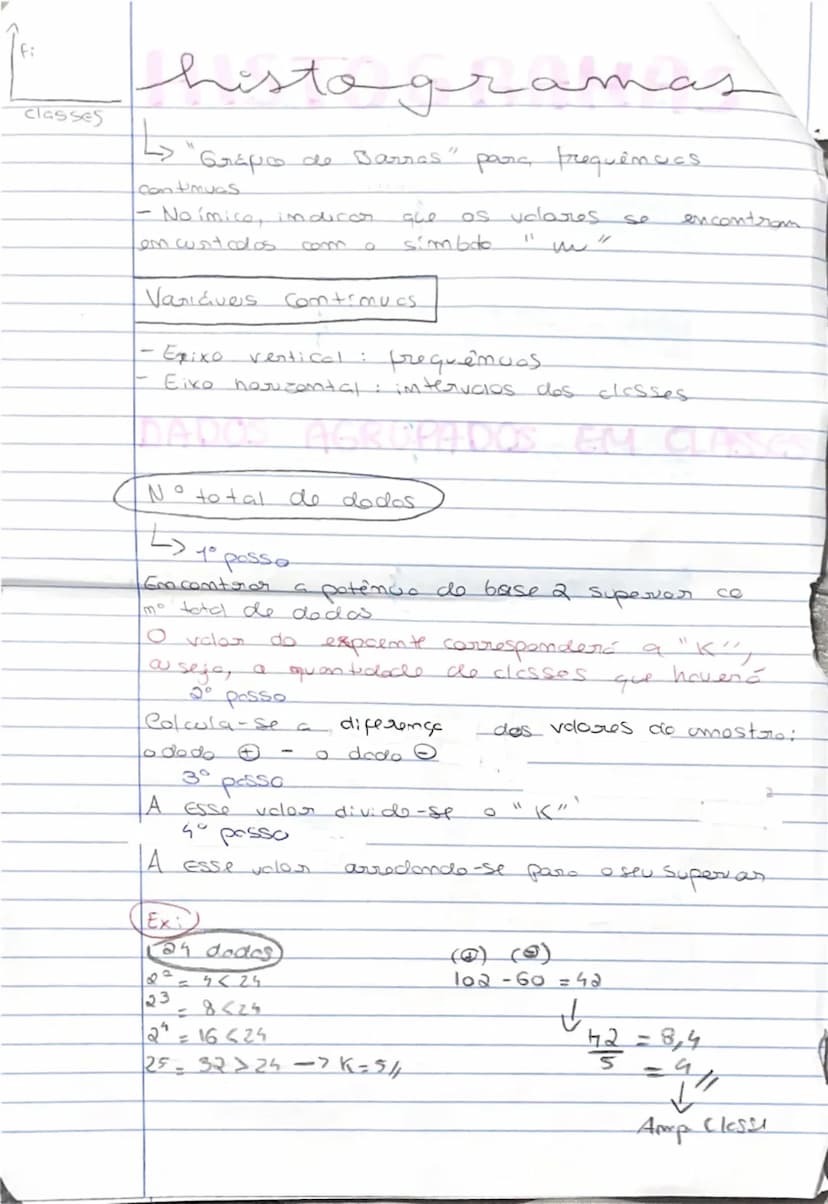 fi
classes
histogramas
↳ "Gráfico de Barras" para frequências
continuas
- No ínico, indicar que os valores se encontram
encurtados com o símbolo "
Variáveis Contínuas
- Eixo vertical : frequências
- Eixo horizontal : intervalos das classes
DADOS AGRUPADOS EM CLASSES
Nº total de dados
↳ 1º passo
Encontrar a potência de base 2 superior ao
nº total de dados
O valor do expoente corresponderá a "K",
ou seja, a quantidade de classes que haverá
2º passo
Calcula-se a diferença dos valores da amostra:
o dado ⊕ - o dado ⊖
3º passo
A esse valor divide-se o "K"
4º passo
A esse valor arredonda-se para o seu superior
Ex:
24 dados
2² = 4 < 24
2³ = 8 < 24
2⁴ = 16 < 24
2⁵ = 32 > 24 → K = 5//
(⊕) (⊖)
102 - 60 = 42
↓
42/5 = 8,4
= 9//
↓
Amp Classe